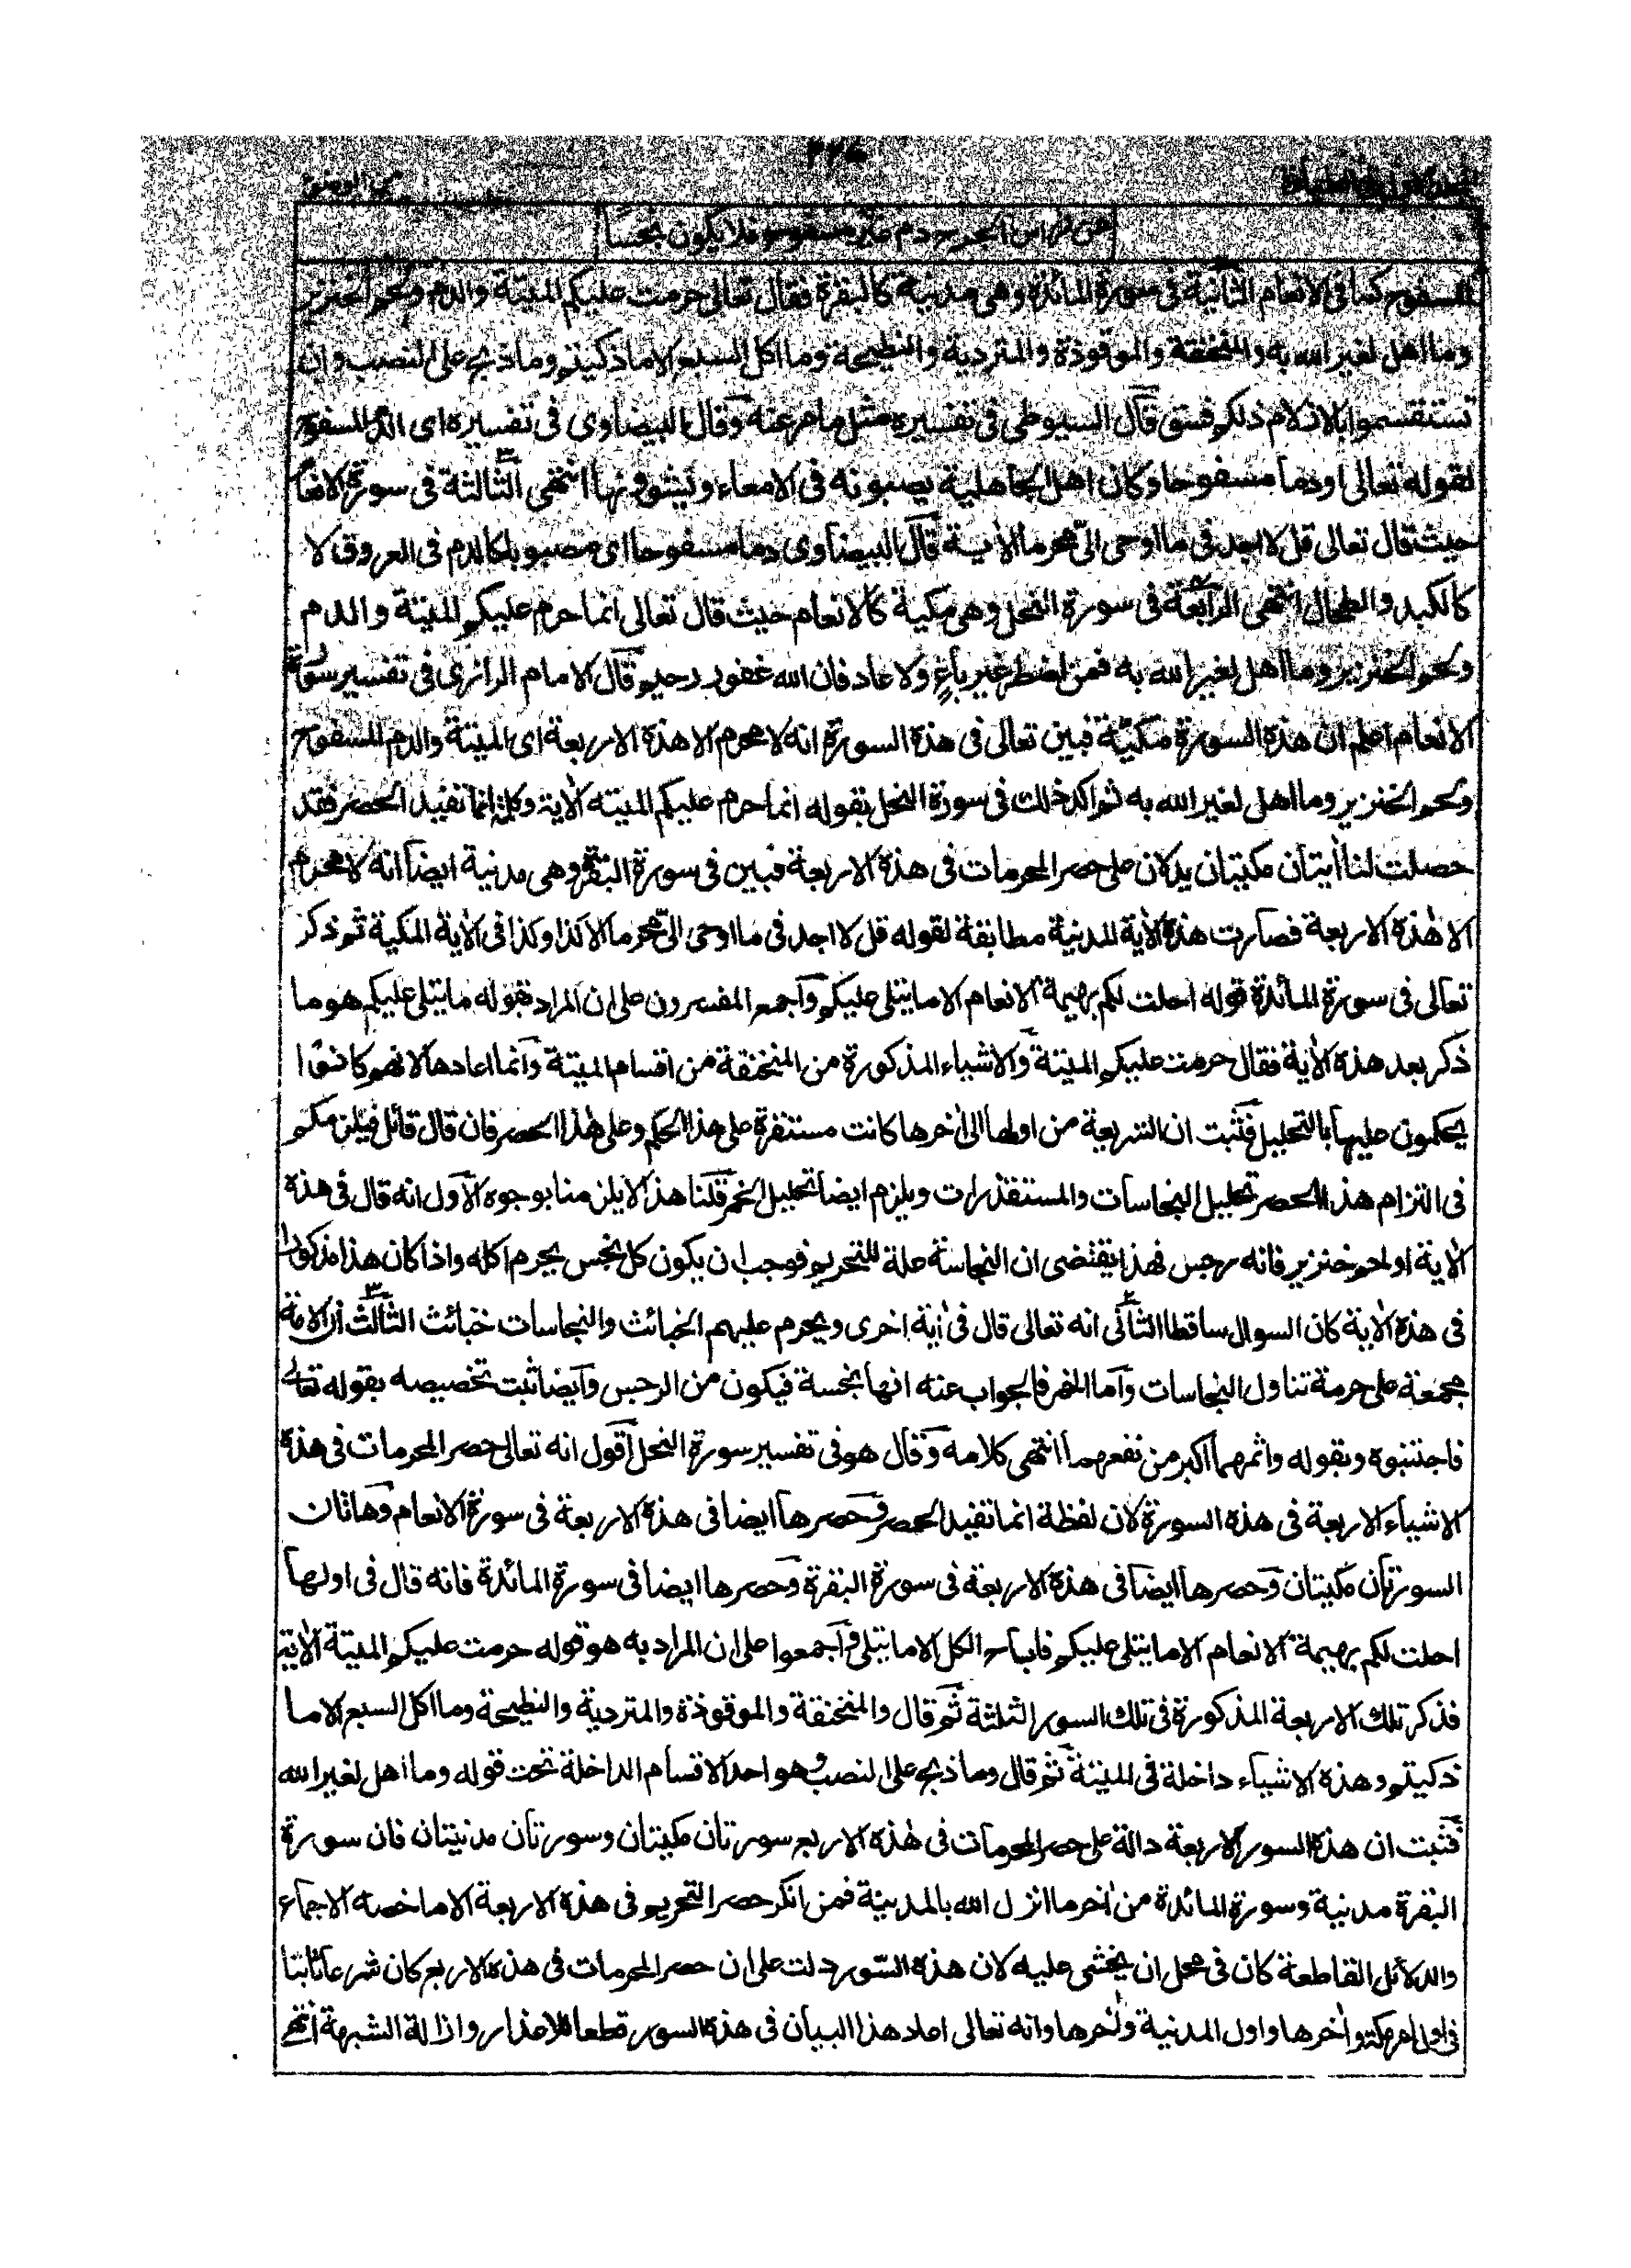 ٢٢٥
دم غير مسفوح فلا يكون نجسا
المسفوح كما فى الانعام الثانية فى سورة المائدة وهى مدنية كالبقرة فقال تعالى حرمت عليكم الميتة والدم ولحم الخنزير
وما اهل لغير الله به والمنخنقة والموقوذة والمتردية والنطيحة وما اكل السبع الا ما ذكيتم وما ذبح على النصب وان
تستقسموا بالازلام ذلكم فسق قال السيوطى فى تفسيره مثل ما مر عنه وقال البيضاوى فى تفسيره اى الدم المسفوح
لقوله تعالى او دما مسفوحا وكان اهل الجاهلية يصبونه فى الامعاء ويشوونها انتهى الثالثة فى سورة الانعام
حيث قال تعالى قل لا اجد فى ما اوحى الىّ محرما الاية قال البيضاوى دما مسفوحا اى مصبوبا كالدم فى العروق لا
كالكبد والطحال انتهى الرابعة فى سورة النحل وهى مكية كالانعام حيث قال تعالى انما حرم عليكم الميتة والدم
ولحم الخنزير وما اهل لغير الله به فمن اضطر غير باغ ولا عاد فان الله غفور رحيم قال الامام الرازى فى تفسير سورة
الانعام اعلم ان هذه السورة مكية فبين تعالى فى هذه السورة انه لا محرم الا هذه الاربعة اى الميتة والدم المسفوح
ولحم الخنزير وما اهل لغير الله به ثم اكد ذلك فى سورة النحل بقوله انما حرم عليكم الميتة الاية وكلمة انما تفيد الحصر فقد
حصلت لنا أيتان مكيتان يدلان على حصر المحرمات فى هذه الاربعة فبين فى سورة البقرة وهى مدنية ايضا انه لا محرم
الا هذه الاربعة فصارت هذه الاية المدنية مطابقة لقوله قل لا اجد فى ما اوحى الىّ محرما الا كذا وكذا فى الاية المكية ثم ذكر
تعالى فى سورة المائدة قوله احلت لكم بهيمة الانعام الا ما يتلى عليكم وأجمع المفسرون على ان المراد بقوله ما يتلى عليكم هو ما
ذكر بعد هذه الاية فقال حرمت عليكم الميتة والاشياء المذكورة من المنخنقة من اقسام الميتة وانما اعادها لانهم كانوا
يحكمون عليها بالتحليل فثبت ان الشريعة من اولها الى اخرها كانت مستقرة على هذا الحكم وعلى هذا الحصر فان قال قائل فيلزمكم
فى التزام هذا الحصر تحليل النجاسات والمستقذرات ويلزم ايضا تحليل الخمر قلنا هذا لا يلزمنا بوجوه الأول انه قال فى هذه
الاية او لحم خنزير فانه رجس فهذا يقتضى ان النجاسة علة للتحريم فوجب ان يكون كل نجس يحرم اكله واذا كان هذا مذكورا
فى هذه الاية كان السوال ساقطا الثانى انه تعالى قال فى أية اخرى ويحرم عليهم الخبائث والنجاسات خبائث الثالث أن الامة
مجمعة على حرمة تناول النجاسات وأما الخمر فالجواب عنه انها نجسة فيكون من الرجس وأيضا ثبت تخصيصه بقوله تعالى
فاجتنبوه وبقوله واثمهما أكبر من نفعهما انتهى كلامه وقال هو فى تفسير سورة النحل أقول انه تعالى حصر المحرمات فى هذه
الاشياء الاربعة فى هذه السورة لان لفظة انما تفيد الحصر وحصرها ايضا فى هذه الاربعة فى سورة الانعام وهاتان
السورتان مكيتان وحصرها ايضا فى هذه الاربعة فى سورة البقرة وحصرها ايضا فى سورة المائدة فانه قال فى اولها
احلت لكم بهيمة الانعام الا ما يتلى عليكم فاباح الكل الا ما يتلى وأجمعوا على ان المراد به هو قوله حرمت عليكم الميتة الاية
فذكر تلك الاربعة المذكورة فى تلك السور الثلثة ثم قال والمنخنقة والموقوذة والمتردية والنطيحة وما اكل السبع الا ما
ذكيتم وهذه الاشياء داخلة فى الميتة ثم قال وما ذبح على النصب وهو احد الاقسام الداخلة تحت قوله وما اهل لغير الله
فثبت ان هذه السور الاربعة دالة على حصر المحرمات فى هذه الاربع سورتان مكيتان وسورتان مدنيتان فان سورة
البقرة مدنية وسورة المائدة من اخر ما انزل الله بالمدينة فمن انكر حصر التحريم فى هذه الاربعة الا ما خصه الاجماع
والدلائل القاطعة كان فى محل ان يخشى عليه لان هذه السور دلت على ان حصر المحرمات فى هذه الاربع كان شرعا ثابتا
فى اول امر مكة واخرها واول المدنية واخرها وانه تعالى اعاد هذا البيان فى هذه السور قطعا للاعذار وازالة الشبهة انتهى